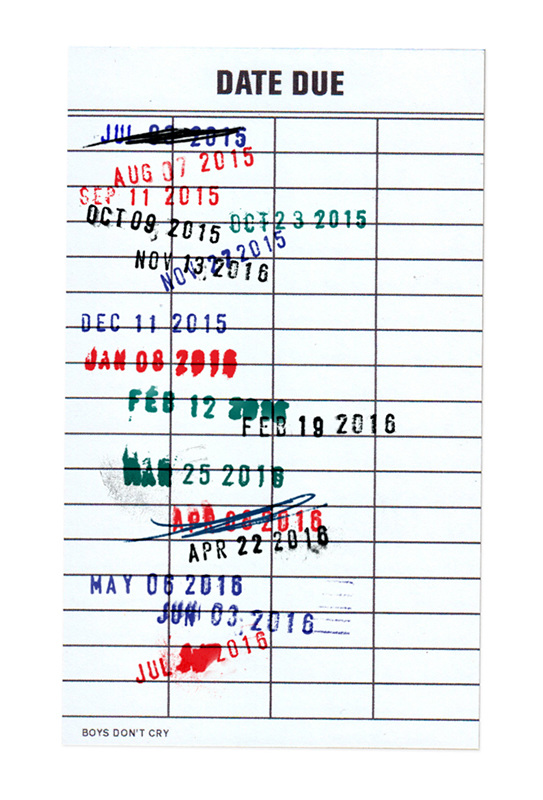 DATE DUE
JUL 2015
AUG 07 2015
SEP 11 2015
OCT 09, 2015 OCT 23 2015
NOV 13, 2016
NOV 27 2015
DEC 11 2015
JAN 08 2016
FEB 12 2016
FEB 19 2016
MAR 25 2016
APR 2016
APR 22 2016
MAY 06 2016
JUN 03, 2016
JUL 2016
BOYS DON'T CRY